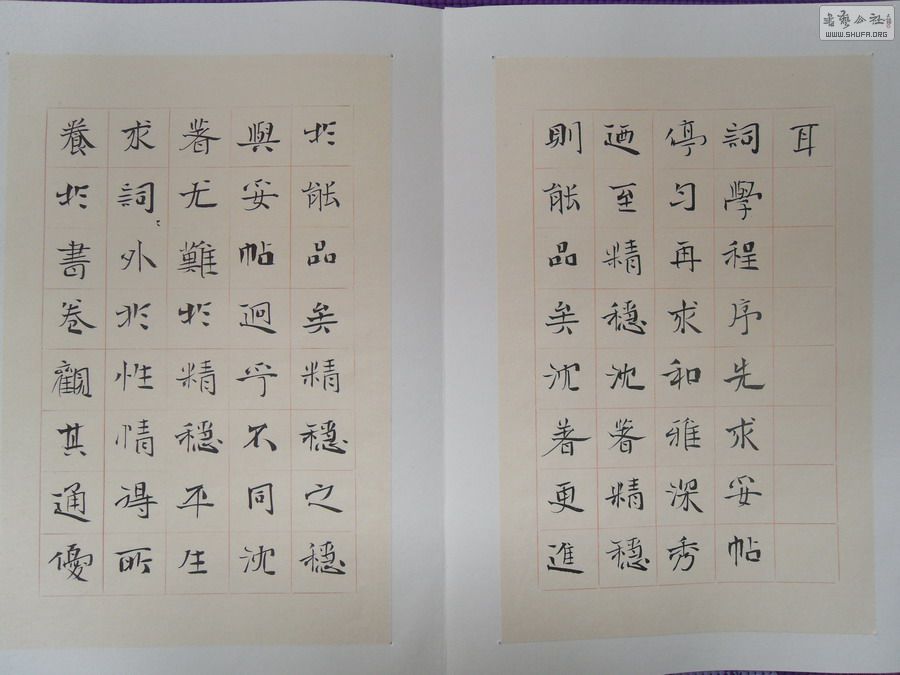 耳
詞學程序先求妥帖
停勻再求和雅深秀
迺至精穩沈著精穩
則能品矣沈著更進
於能品矣精穩之穩
與妥帖迥乎不同沈
著尤難於精穩平生
求詞詞外於性情得所
養於書卷觀其通優
書藝公社
WWW.SHUFA.ORG